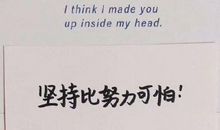 I think I made you
up inside my head.
坚持比努力可怕!